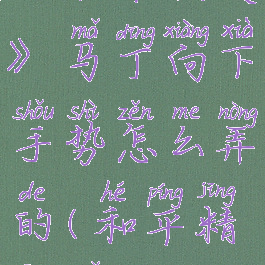 mǎ dīng xiàng xià
》马丁向下
shǒu shì zěn me nòng
手势怎么弄
de hé píng jīng
的(和平精